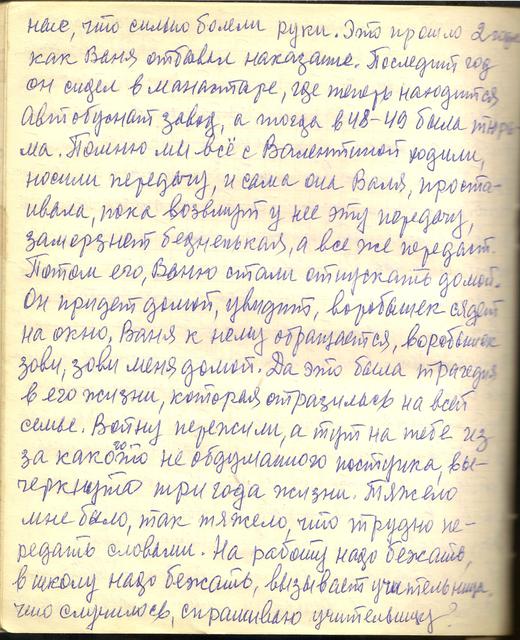 ние, что сильно болели руки. Это прошло 2 года
как Ваня отбывал наказание. Последний год
он сидел в манастаре, где теперь находится
Автобусный завод, а тогда в 48-49 была тюрь
ма. Помню мы всё с Валентиной ходили,
носили передачу, и сама она Валя, проста-
ивала, пока возьмут у нее эту передачу,
замерзнет бедненькая, а все же передаст.
Потом его, Ваню стали отпускать домой.
Он придет домой, увидит, воробышек сядет
на окно, Ваня к нему обращается, воробышек
зови, зови меня домой. Да это была трагедия
в его жизни, которая отразилась на всей
семье. Войну пережили, а тут на тебе из
за какого то не обдуманного поступка, вы-
черкнуто три года жизни. Тяжело
мне было, так тяжело, что трудно пе-
редать словами. На работу надо бежать,
в школу надо бежать, вызывает учительница.
что случилось, спрашиваю учительницу?